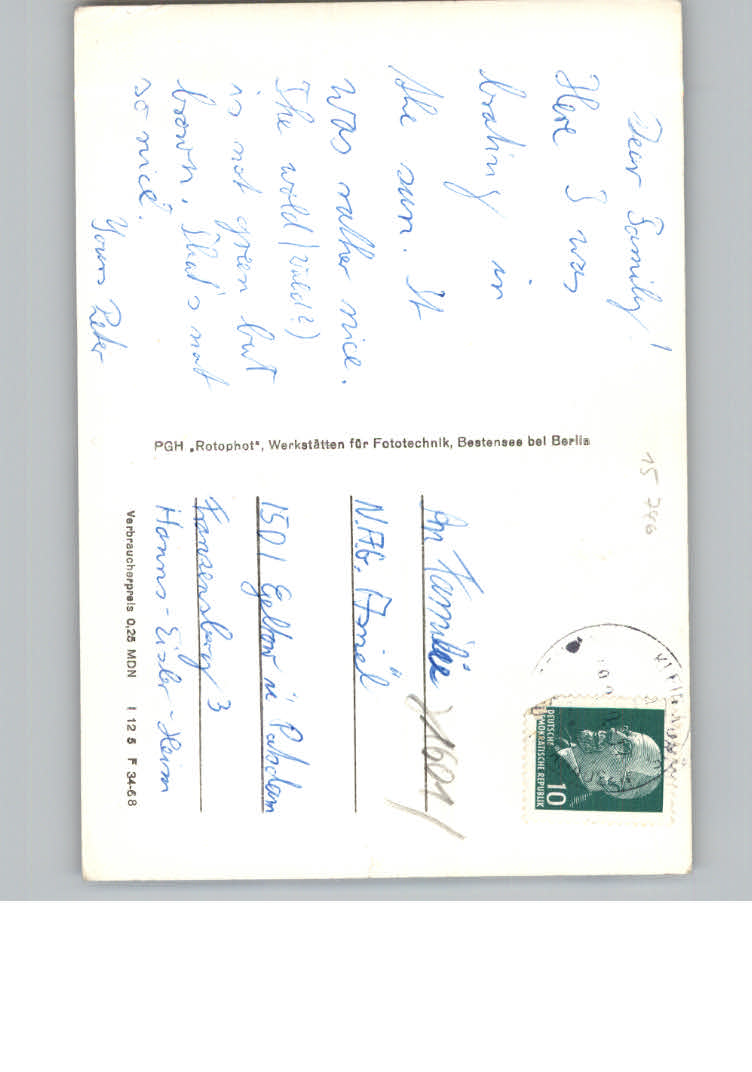 Dear Family!
Here I was
brating in
the sun. It
was rather nice.
The wold (wild?)
is not green but
brown. That's not
so nice.
Yours Peter
PGH „Rotophot“, Werkstätten für Fototechnik, Bestensee bei Berlin
15 746
An Familie
1501 Geltow ü Potsdam
Franzensburg 3
Hanns-Eisler-Heim
Verbraucherpreis 0,25 MDN I 12 5 F 34-68
DEUTSCHE
DEMOKRATISCHE REPUBLIK
10